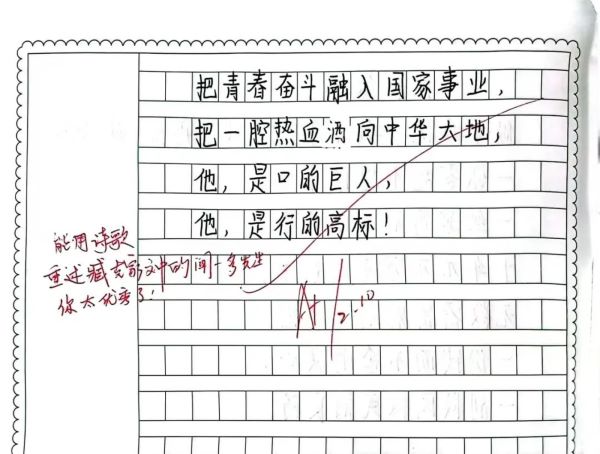 把青春奋斗融入国家事业，
把一腔热血洒向中华大地，
他，是口的巨人，
他，是行的高标！
能用诗歌
重述臧克家文中的闻一多先生
你太优秀了！
A+
2.10